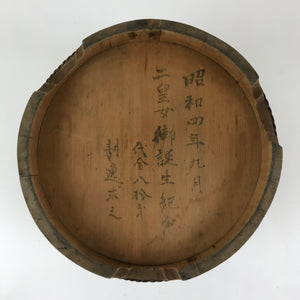 昭和四年九月
二皇女御誕生紀念
代金八拾
求之